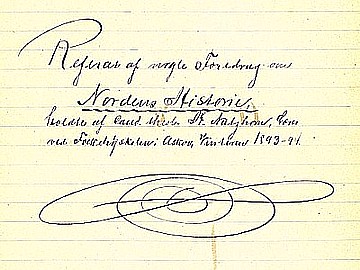 Referat af nogle Foredrag om
Nordens Historie,
holdt af Cand. theol.
ved Folkehøjskolen i Askov, Vinteren 1893-94.